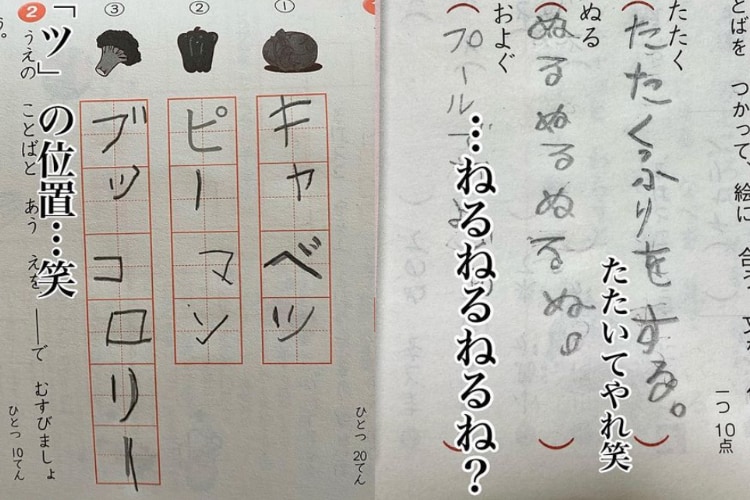 とばを つかって、絵に 合う
一つ 10点
たたく
たたくふりをする。
たたいてやれ笑
ぬる
ぬるぬるぬるぬ。
…ねるねるねるねるね?
およぐ
プールで
ひとつ 20てん
①
キャベツ
②
ピーマン
③
ブッコロリー
「ツ」の位置…笑
2 うえの ことばと あう えを ──で むすびましょ
う。
ひとつ 10てん